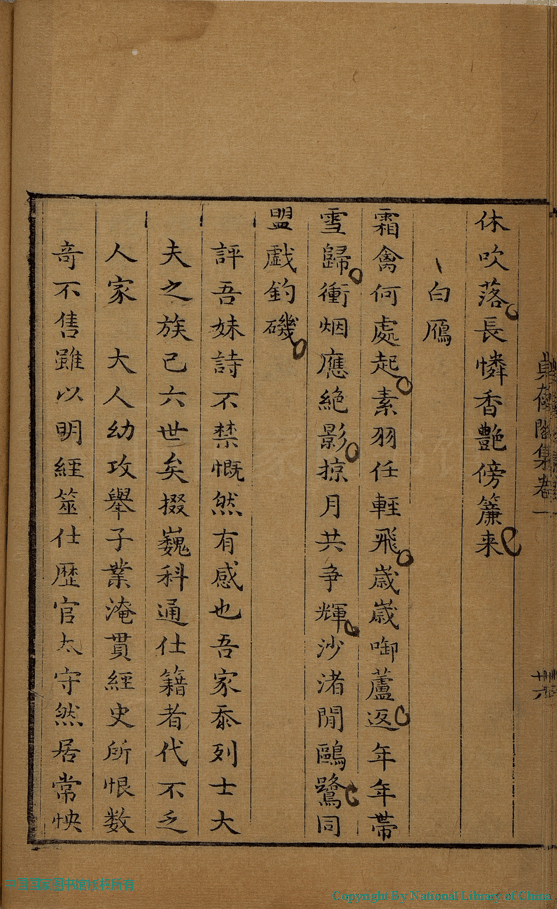 休吹落長憐香艷傍簾来
白鴈
霜禽何處起素羽任輕飛歲歲啣蘆返年年帶
雪歸衝烟應絶影掠月共争輝沙渚閒鷗鷺同
盟戲釣磯
評吾妹詩不禁慨然有感也吾家忝列士大
夫之族已六世矣掇巍科通仕籍者代不乏
人家 大人幼攻舉子業淹貫經史所恨数
竒不售雖以明經筮仕歴官太守然居常怏
Copyright by National Library of China